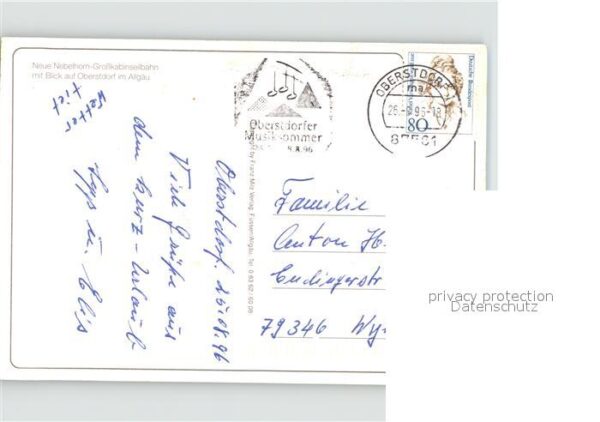 Neue Nebelhorn-Großkabinseilbahn
mit Blick auf Oberstdorf im Allgäu
Wetter
tief
Oberstdorf. 25.08.96
Viele Grüße aus
dem Kurz-Urlaub
Oberstdorfer
Musiksommer
8.8.96
OBERSTDORF
ma
26.-8.96-18
87561
Deutsche Bundespost
80
Familie
Anton H
Endingerstr
79346 Wy
privacy protection
Datenschutz